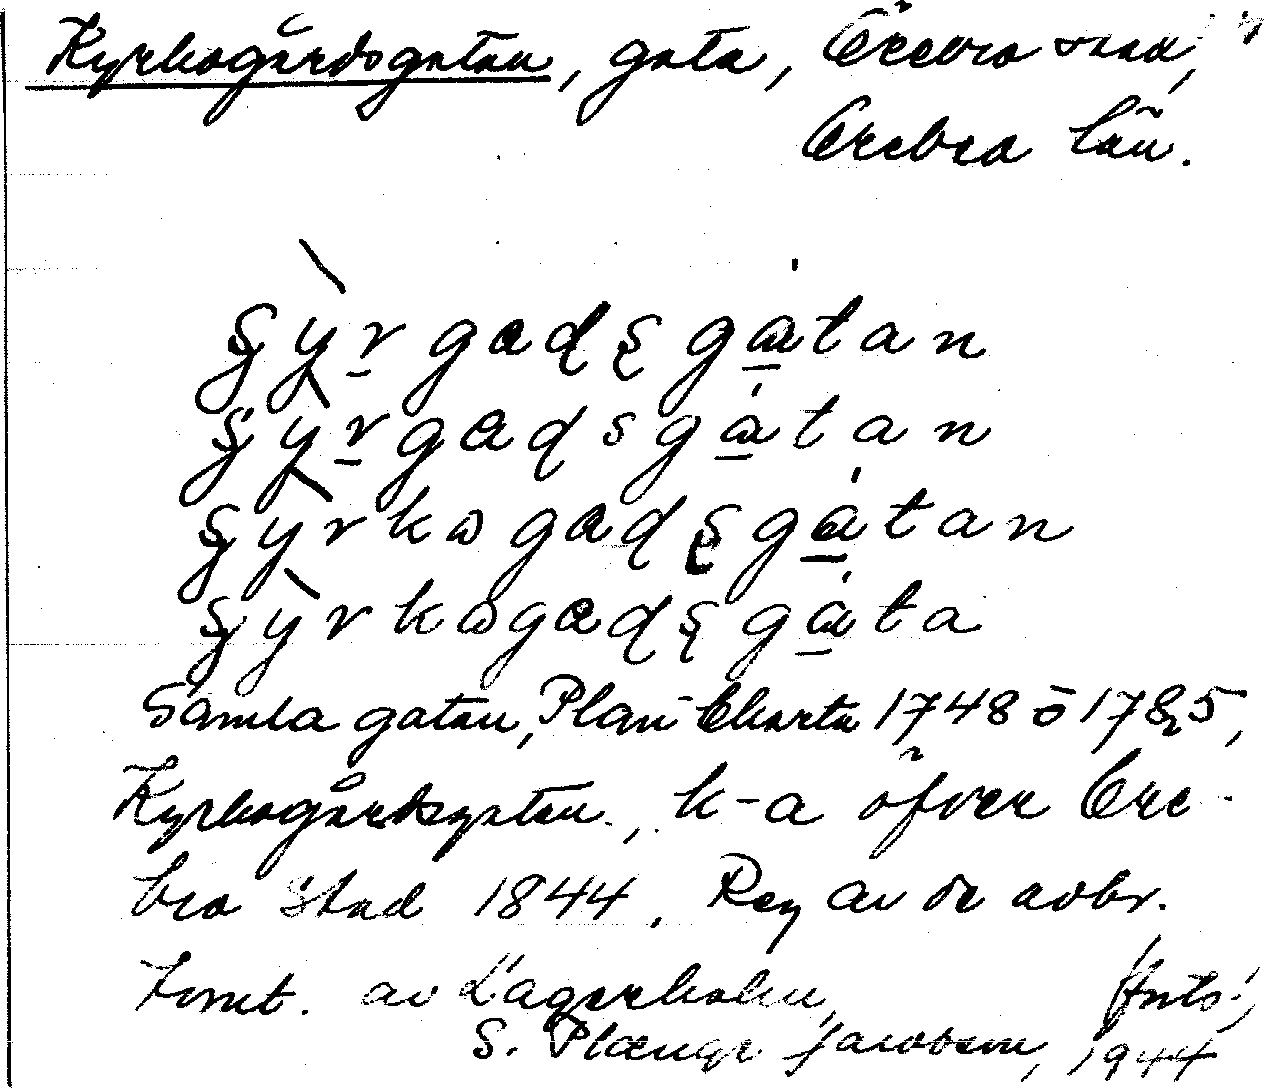 Kyrkogårdsgatan, gata, Örebro stad,
Örebro län.
gyrgadsgatan
gyrgadsgatan
gyrkogadsgatan
gyrkogadsgata
Samla gatan, Plan Charta 1748 ō 1785,
Kyrkogårdsgatan, k-a öfver Öre-
bro Stad 1844. Reg av de avbr.
Tomt. av Lagerholm,
S. Plænge Jacobson, 1944